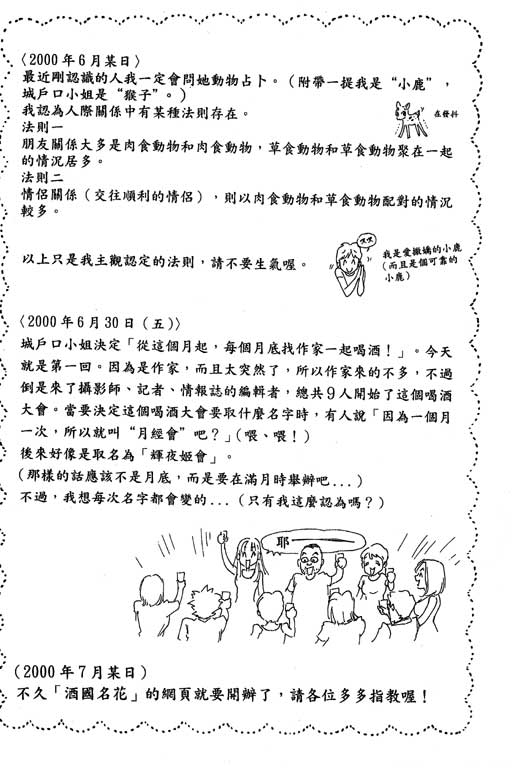 〈2000年6月某日〉
最近剛認識的人我一定會問她動物占卜。(附帶一提我是“小鹿”，
城戶口小姐是“猴子”。)
我認為人際關係中有某種法則存在。
在發抖
法則一
朋友關係大多是肉食動物和肉食動物，草食動物和草食動物聚在一起
的情況居多。
法則二
情侶關係(交往順利的情侶)，則以肉食動物和草食動物配對的情況
較多。
以上只是我主觀認定的法則，請不要生氣喔。
我是愛撒嬌的小鹿
(而且是個可靠的
小鹿)
〈2000年6月30日(五)〉
城戶口小姐決定「從這個月起，每個月底找作家一起喝酒！」。今天
就是第一回。因為是作家，而且太突然了，所以作家來的不多，不過
倒是來了攝影師、記者、情報誌的編輯者，總共9人開始了這個喝酒
大會。當要決定這個喝酒大會要取什麼名字時，有人說「因為一個月
一次，所以就叫“月經會”吧？」(喂、喂！)
後來好像是取名為「輝夜姬會」。
(那樣的話應該不是月底，而是要在滿月時舉辦吧...)
不過，我想每次名字都會變的...(只有我這麼認為嗎？)
耶——
(2000年7月某日)
不久「酒國名花」的網頁就要開辦了，請各位多多指教喔！